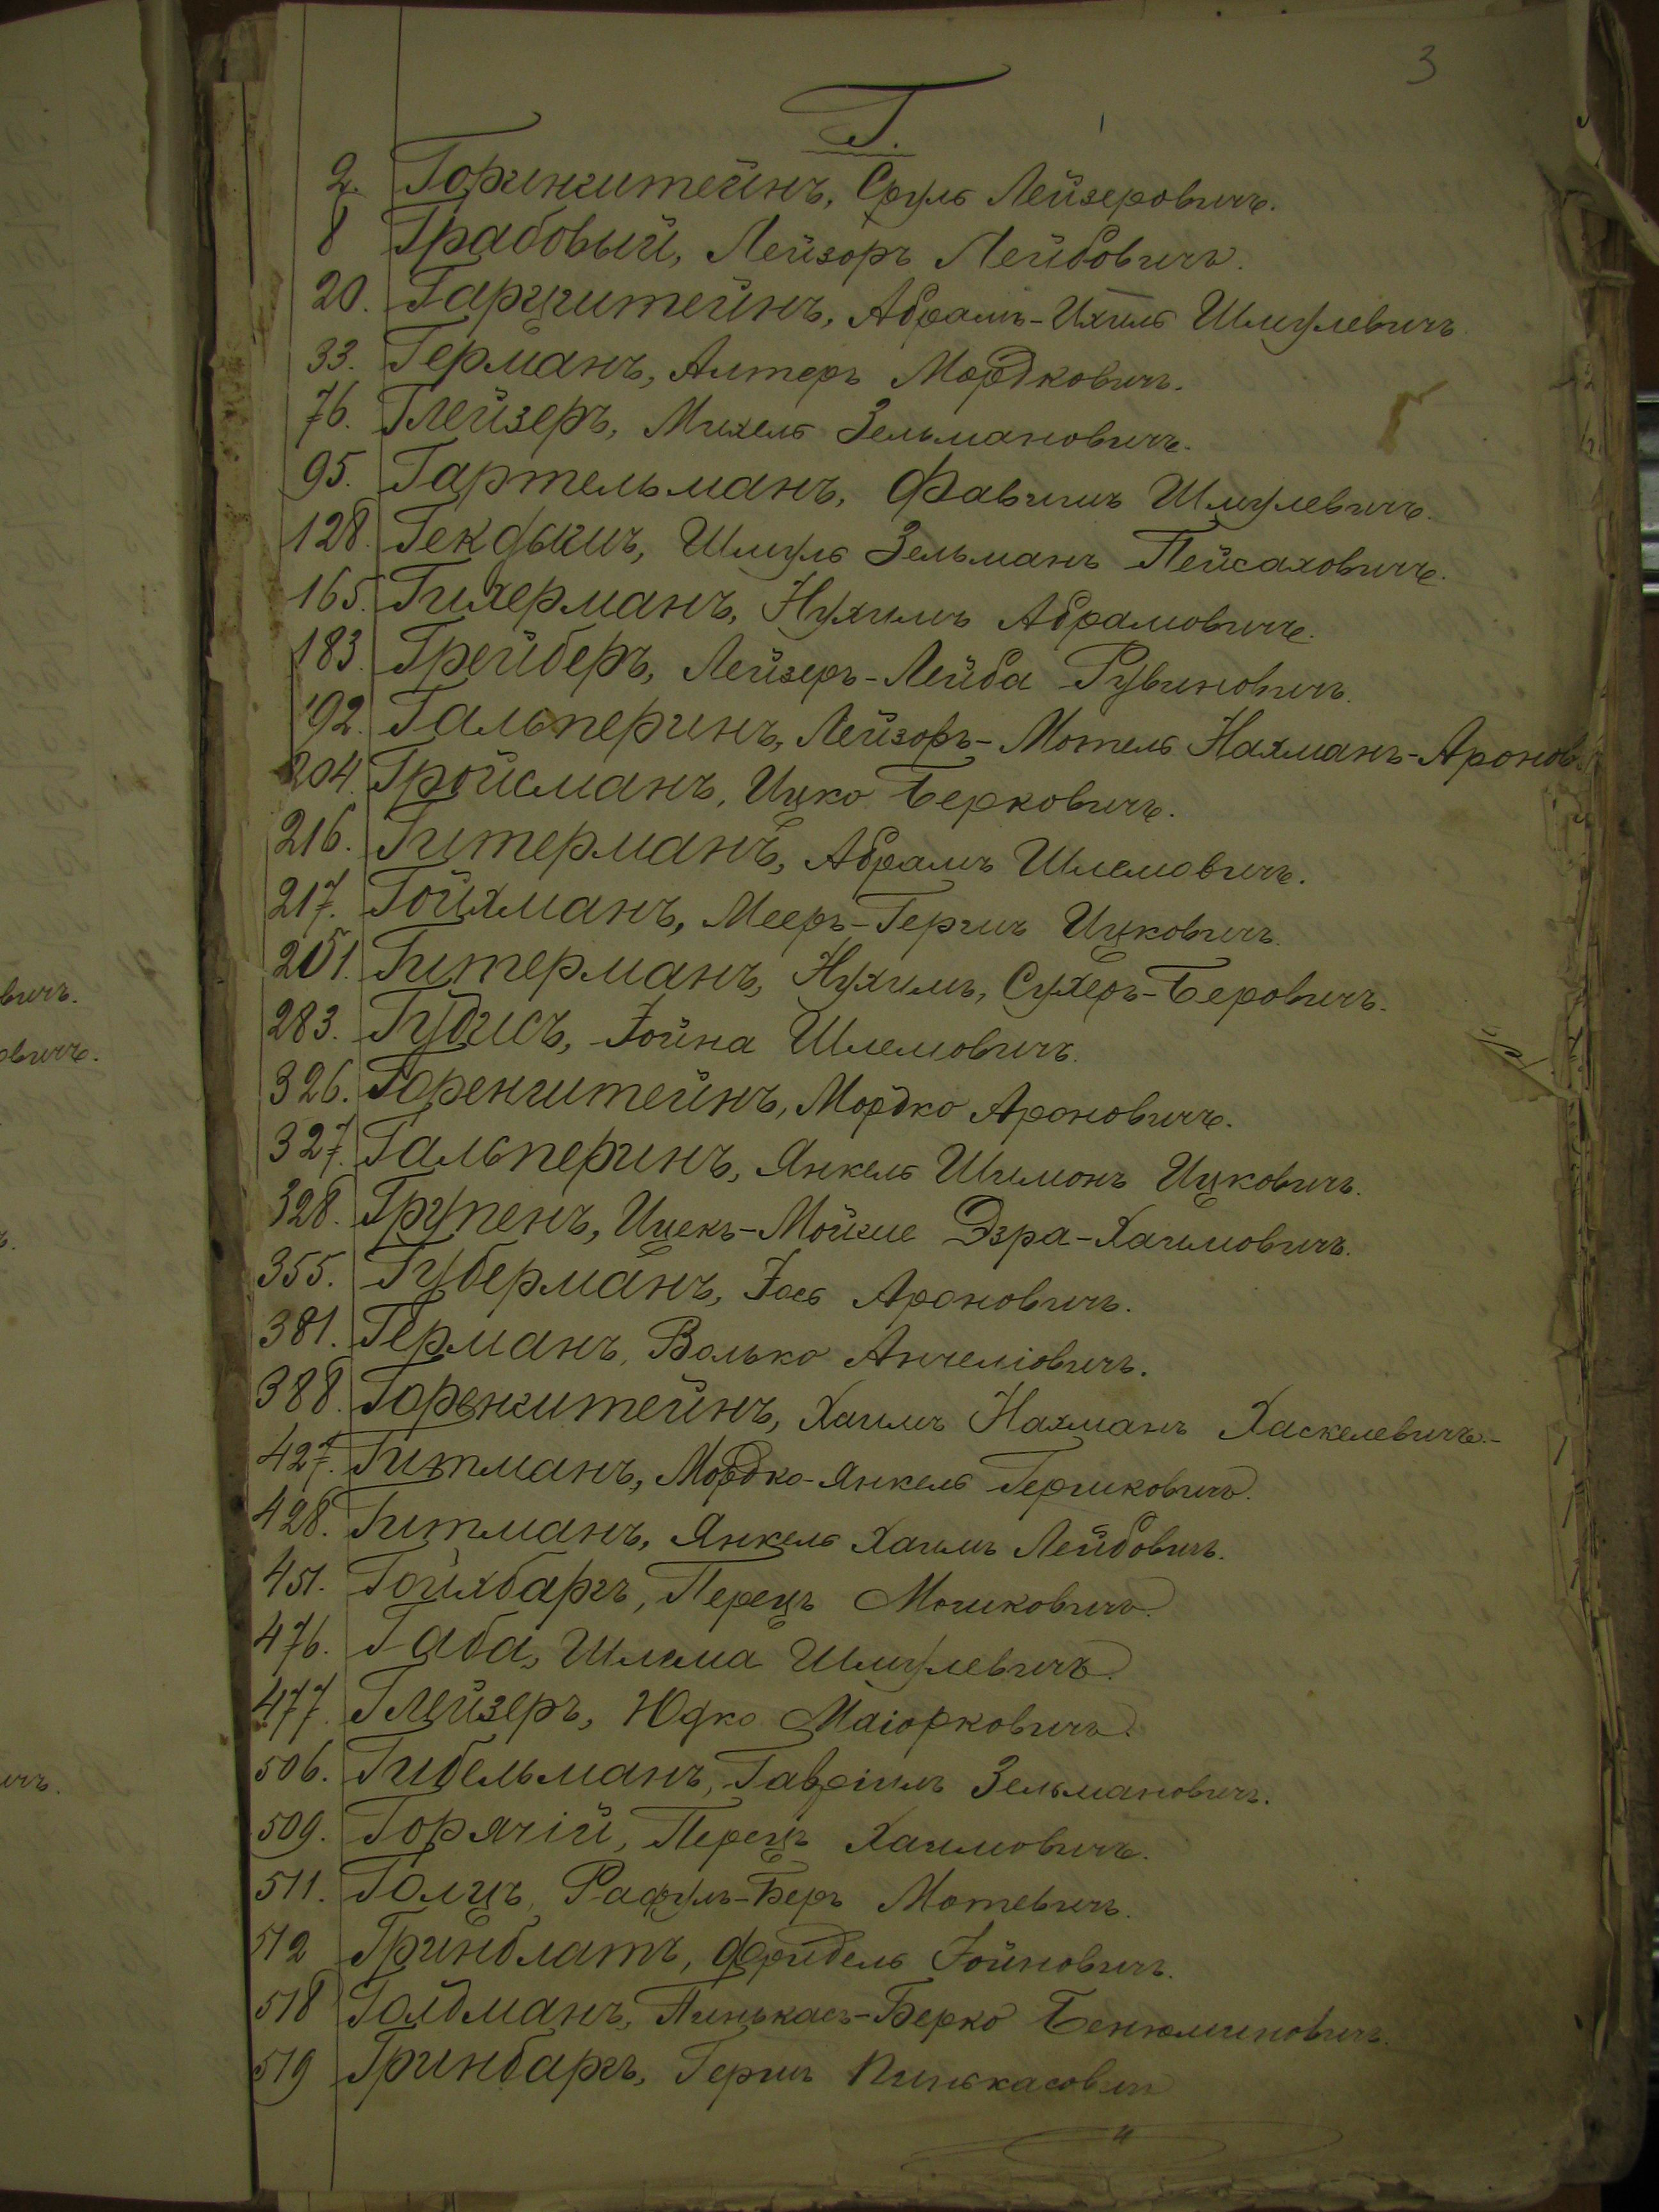 3
Г.
2. Горинштейнъ, Сруль Лейзеровичъ.
8 Грабовый, Лейзоръ Лейбовичъ.
20. Гарцштейнъ, Абрамъ-Ихиль Шмулевичъ
33. Германъ, Алтеръ Мордковичъ.
76. Глейзеръ, Михель Зельмановичъ.
95. Гартельманъ, Фавишъ Шмулевичъ.
128. Шмуль Зельманъ Пейсаховичъ.
165. Гихерманъ, Нухимъ Абрамовичъ.
183. Грейберъ, Лейзеръ-Лейба Рувиновичъ.
192. Гальперинъ, Лейзоръ-Мотель Нахманъ-Аронов.
204. Гройсманъ, Ицко Берковичъ.
216. Гитерманъ, Абрамъ Шлемовичъ.
217. Гойхманъ, Мееръ-Гершъ Ицковичъ.
251. Гитерманъ, Нухимъ, Сухеръ-Беровичъ.
283. Гудисъ, Іойна Шлемовичъ.
326. Горенштейнъ, Мордко Ароновичъ.
327. Гальперинъ, Янкель Шимонъ Ицковичъ.
328. Групенъ, Ицекъ-Мойше Эзра-Хаимовичъ.
355. Губерманъ, Іось Ароновичъ.
381. Германъ, Волько Анчеліовичъ.
388. Горенштейнъ, Хаимъ Нахманъ Хаскелевичъ.-
427. Гитманъ, Мордко-Янкель Гершковичъ.
428. Гитманъ, Янкель Хаимъ Лейбовичъ.
451. Гойхбаргъ, Перецъ Мошковичъ.
476. Габа, Шлема Шмулевичъ.
477. Глейзеръ, Юдко Маіорковичъ.
506. Гибельманъ, Гавріилъ Зельмановичъ.
509. Горячій, Перецъ Хаимовичъ.
511. Голцъ, Рафулъ-Беръ Мотевичъ.
512 Гринблатъ, Фридель Іойновичъ.
518 Голдманъ, Пинькасъ-Берко Бенюминовичъ.
519 Гринбаргъ, Гершъ Пинькасович